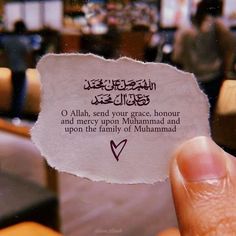 اللهم صل على محمد
وعلى آل محمد
O Allah, send your grace, honour
and mercy upon Muhammad and
upon the family of Muhammad